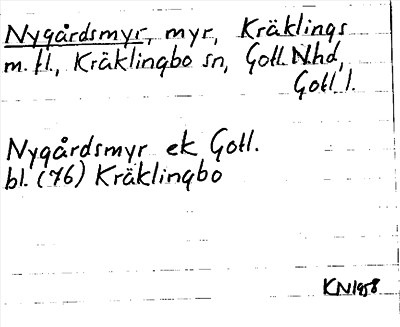 Nygårdsmyr, myr, Kräklings
m. fl., Kräklingbo sn, Gotl. N. hd,
Gotl l.
Nygårdsmyr ek Gotl.
bl. (76) Kräklingbo
KN 1958